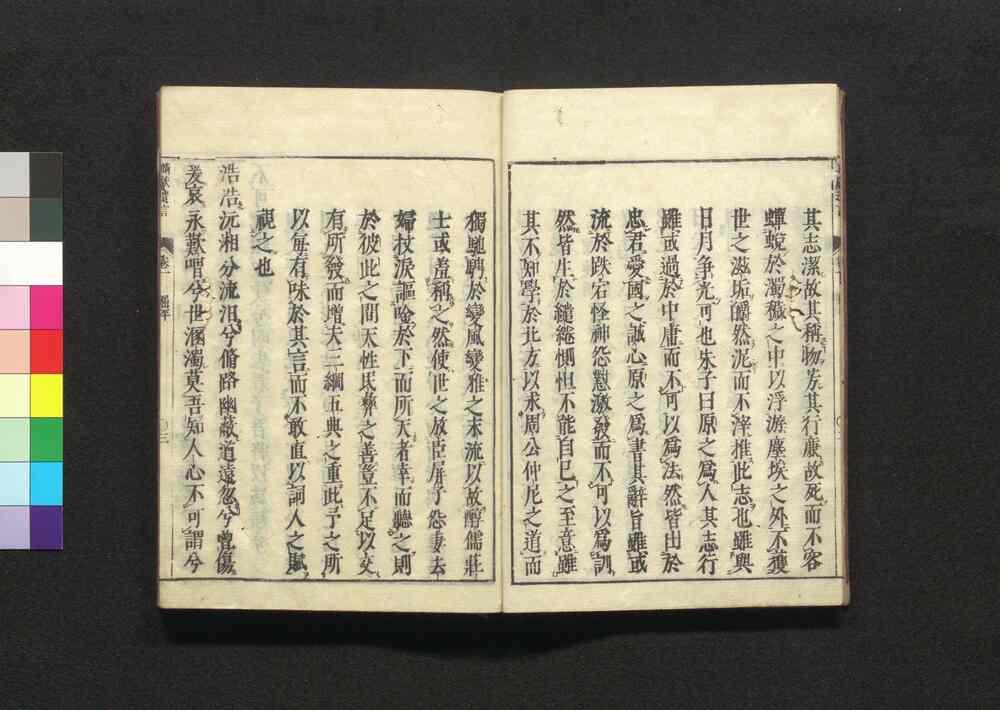 其志潔故其稱物芳其行廉故死而不容
蟬蛻於濁穢之中以浮游塵埃之外不獲
世之滋垢皭然泥而不滓推此志也雖與
日月争光可也朱子曰原之爲人其志行
雖或過於中庸而不可以爲法然皆出於
忠君愛國之誠心原之爲書其辭旨雖或
流於跌宕怪神怨懟激發而不可以爲訓
然皆生於繾綣惻怛不能自已之至意雖
其不知學於北方以求周公仲尼之道而
獨馳騁於變風變雅之末流以故醇儒莊
士或羞稱之然使世之放臣屏子怨妻去
婦抆淚謳唫於下而所天者幸而聽之則
於彼此之間天性民彝之善豈不足以交
有所發而增夫三綱五典之重此予之所
以每有味於其言而不敢直以詞人之賦
視之也
浩浩沅湘分流汨兮脩路幽蔽道遠忽兮曾傷
爰哀永歎喟兮世溷濁莫吾知人心不可謂兮
靖獻遺言
卷一
屈平
三